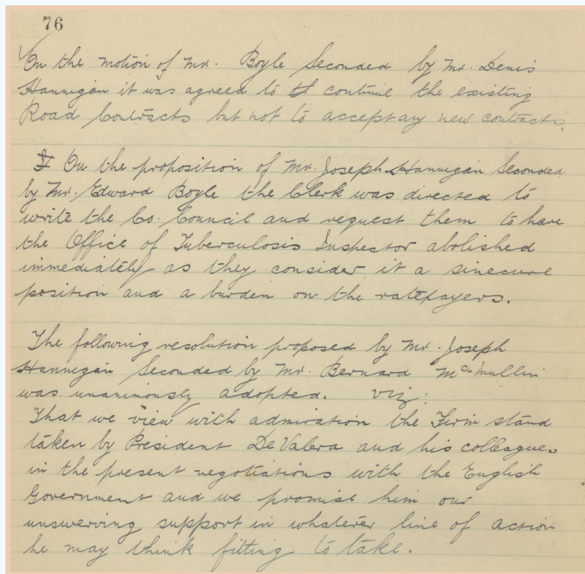 76
On the motion of Mr. Boyle Seconded by Mr. Denis
Hannigan it was agreed to continue the existing
Road Contracts but not to accept any new contracts.
On the proposition of Mr. Joseph Hannigan Seconded
by Mr. Edward Boyle the Clerk was directed to
write the Co. Council and request them to have
the Office of Tuberculosis Inspector abolished
immediately as they consider it a sinecure
position and a burden on the ratepayers.
The following resolution proposed by Mr. Joseph
Hannigan Seconded by Mr. Bernard McMullin
was unanimously adopted. viz:
That we view with admiration the Firm stand
taken by President De Valera and his colleagues
in the present negotiations with the English
Government and we promise him our
unswerving support in whatever line of action
he may think fitting to take.